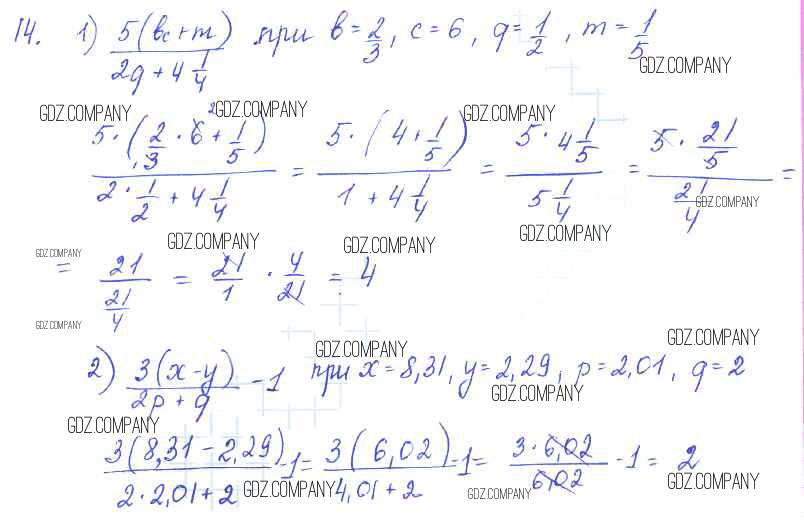 14. 1) 5(bc+m)/(2q+4 1/4) при b=2/3, c=6, q=1/2, m=1/5
GDZ.COMPANY
GDZ.COMPANY GDZ.COMPANY GDZ.COMPANY
5·(2/3·6+1/5)/(2·1/2+4 1/4) = 5·(4+1/5)/(1+4 1/4) = 5·4 1/5/(5 1/4) = 5·21/5/(21/4) =
GDZ.COMPANY
GDZ.COMPANY GDZ.COMPANY GDZ.COMPANY GDZ.COMPANY
= 21/(21/4) = 21/1 · 4/21 = 4
GDZ.COMPANY
GDZ.COMPANY GDZ.COMPANY
2) 3(x-y)/(2p+q) -1 при x=8,31, y=2,29, p=2,01, q=2
GDZ.COMPANY
GDZ.COMPANY
3(8,31-2,29)/(2·2,01+2) -1= 3(6,02)/(4,01+2) -1= 3·6,02/6,02 -1= 2
GDZ.COMPANY GDZ.COMPANY GDZ.COMPANY